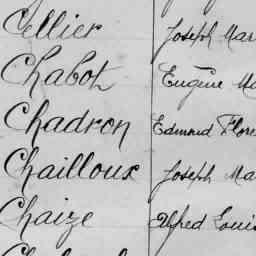 Cellier Joseph Mar
Chabot Eugène Ma
Chadron Edmond Flore
Chailloux Joseph Ma
Chaize Alfred Louis